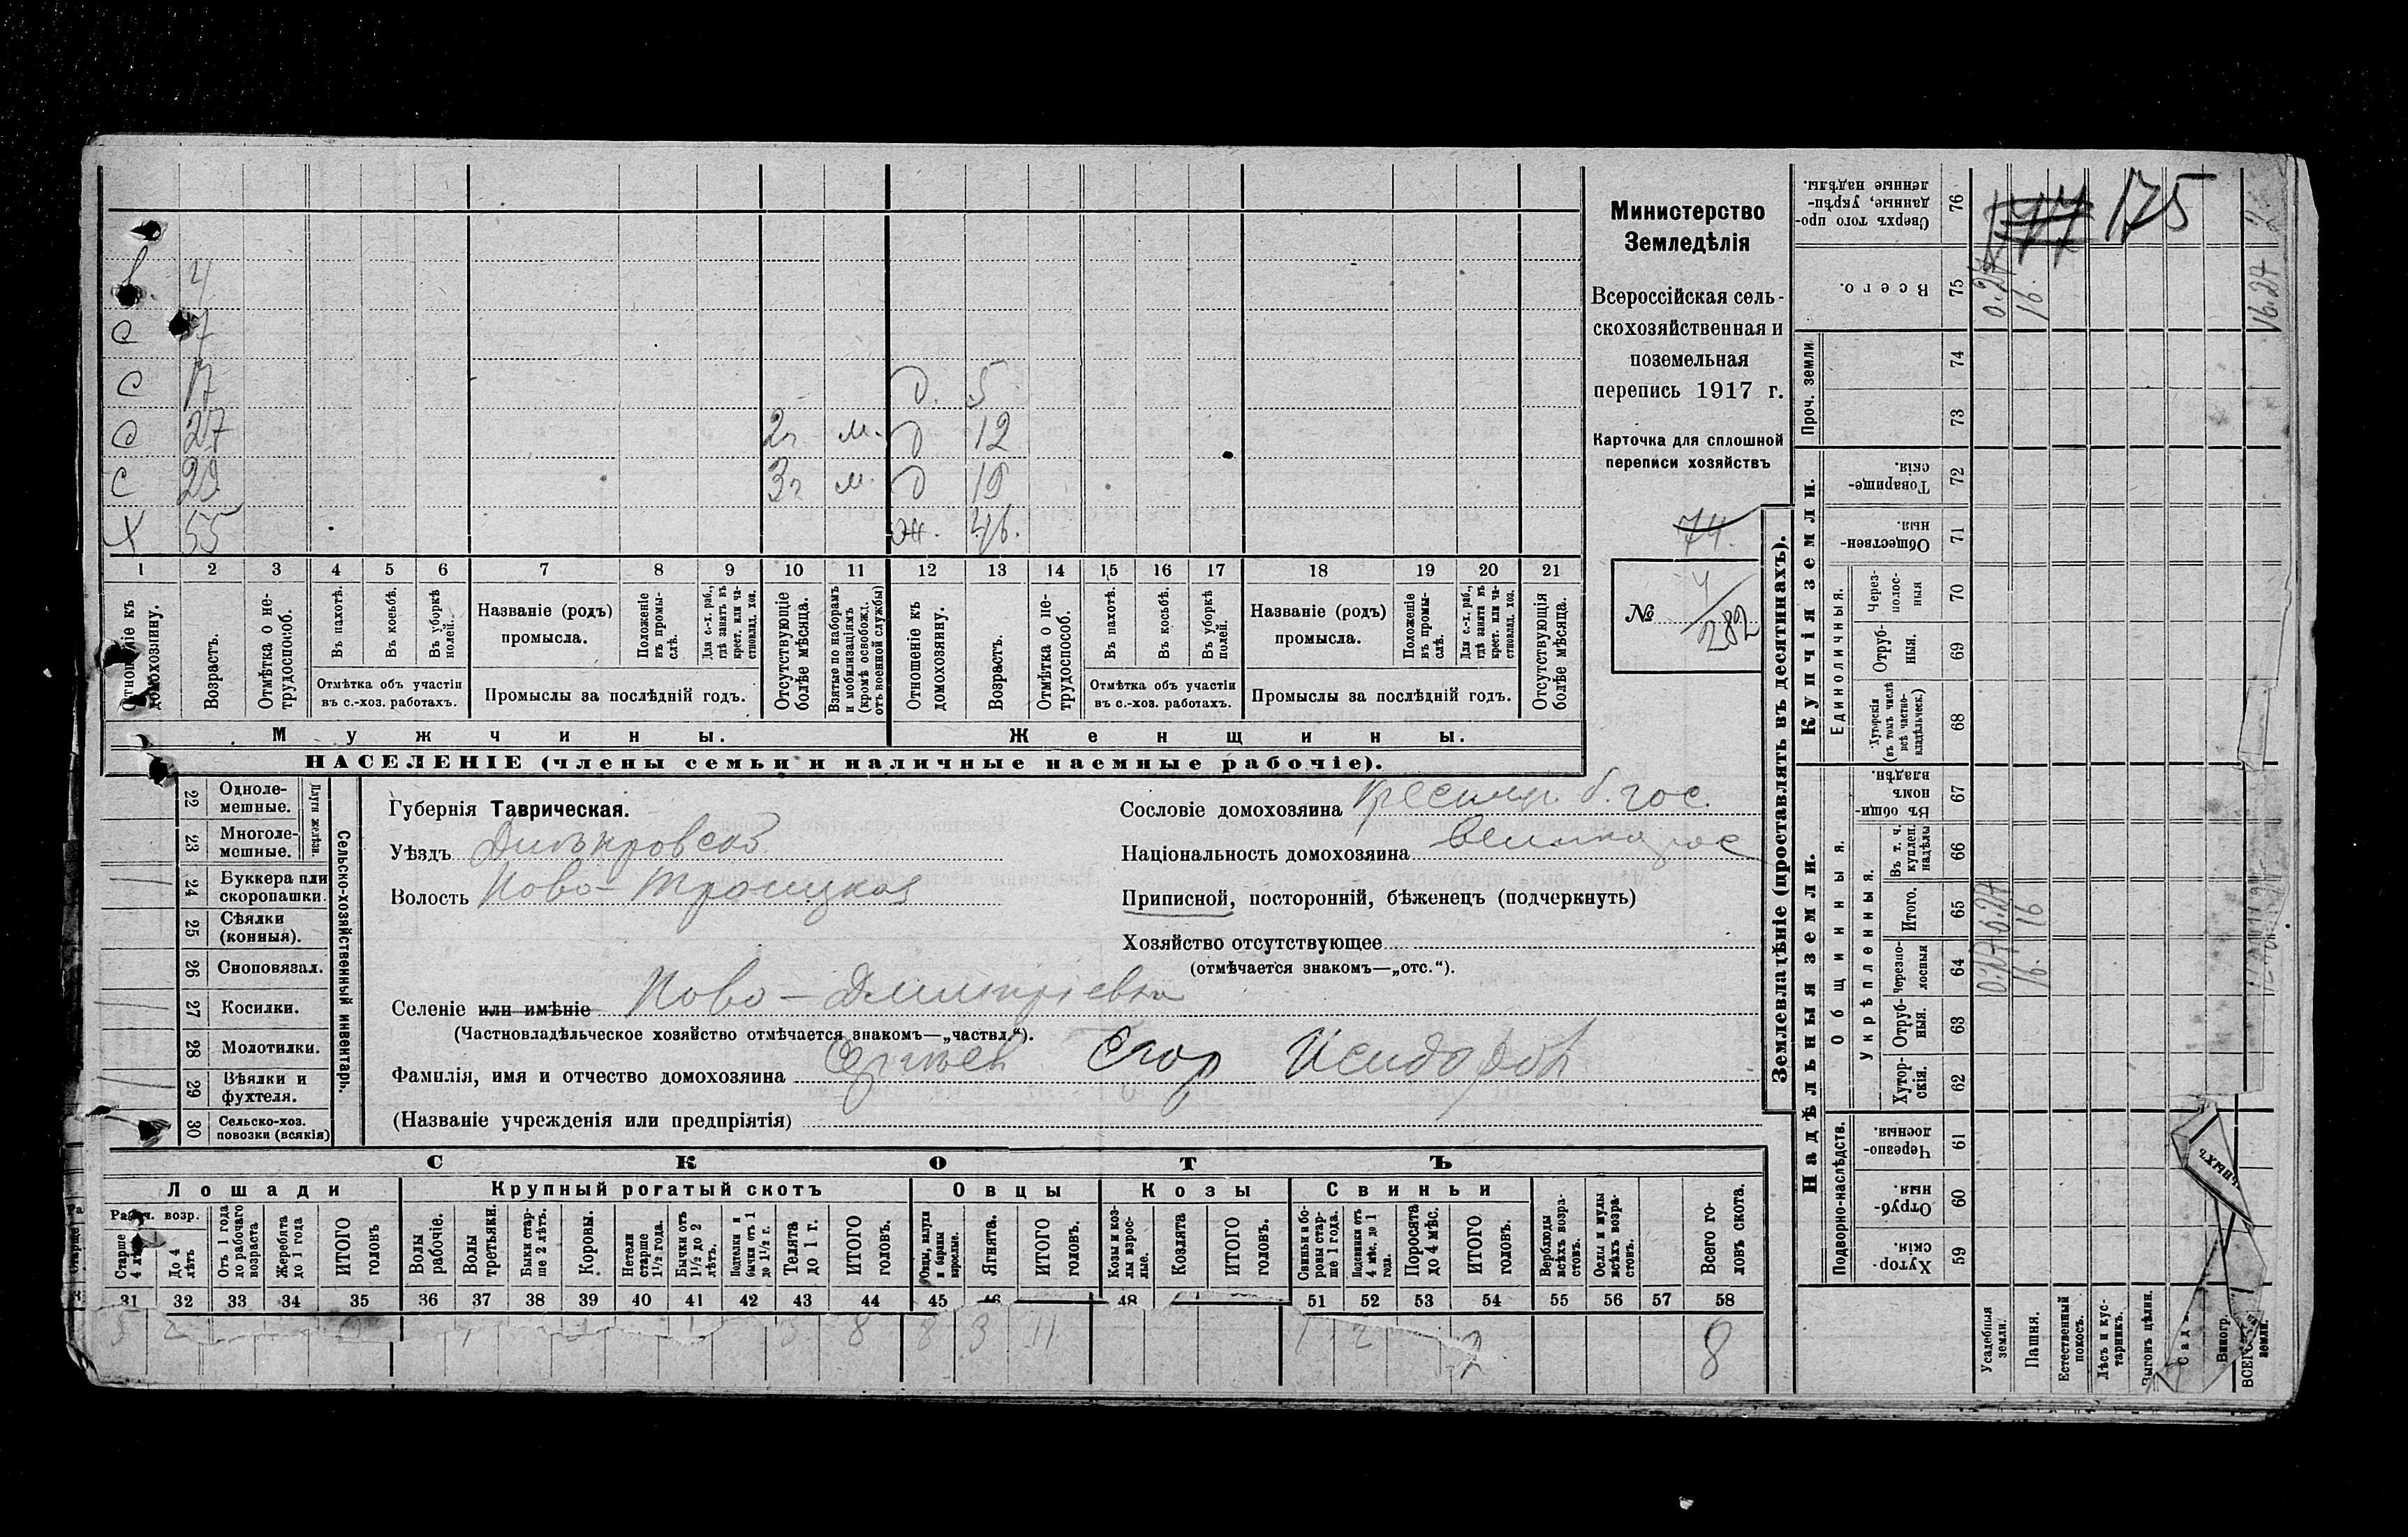 в. 4
с 7
с 17 д. 5
с 27 2г м. д 12
с 29 3г м. д 19
х 55 ж. 46.
1 2 3 4 5 6 7 8 9 10 11 12 13 14 15 16 17 18 19 20 21
Отношеніе къ домохозяину.
Возрастъ.
Отмѣтка о не-трудоспособ.
Въ пахотѣ.
Въ косьбѣ.
Въ уборкѣ полей.
Отмѣтка объ участіи
въ с.-хоз. работахъ.
Названіе (родъ)
промысла.
Положеніе въ промы-слѣ.
Для с.-х. раб., гдѣ занять въ крест. или ча-стновлад. хоз.
Промыслы за послѣдній годъ.
Отсутствующіе болѣе мѣсяца.
Взятые по наборамъ и мобилизаціямъ (кромѣ освобожд. отъ военной службы)
Отношеніе къ домохозяину.
Возрастъ.
Отмѣтка о не-трудоспособ.
Въ пахотѣ.
Въ косьбѣ.
Въ уборкѣ полей.
Отмѣтка объ участіи
въ с.-хоз. работахъ.
Названіе (родъ)
промысла.
Положеніе въ промы-слѣ.
Для с.-х. раб., гдѣ занята въ крест. или ча-стновлад. хоз.
Промыслы за послѣдній годъ.
Отсутствующія болѣе мѣсяца.
Мужчины. Женщины.
НАСЕЛЕНІЕ (члены семьи и наличные наемные рабочіе).
Министерство
Земледѣлія
Всероссійская сель-
скохозяйственная и
поземельная
перепись 1917 г.
Карточка для сплошной
переписи хозяйствъ
74.
№ 4/282
Сельско-хозяйственный инвентарь.
Плуги желѣзн.
22 Одноле-
мешные.
23 Многоле-
мешные.
24 Буккера или
скоропашки.
25 Сѣялки
(конныя).
26 Сноповязал.
27 Косилки.
28 Молотилки.
29 Вѣялки и
фухтеля.
30 Сельско-хоз.
повозки (всякія)
Губернія Таврическая.
Уѣздъ Днѣпровскій
Волость Ново-Троицкая
Селеніе или имѣніе Ново-Дмитріевка
(Частновладѣльческое хозяйство отмѣчается знакомъ—„частвл.“).
Фамилія, имя и отчество домохозяина Сергѣев Егор Исидоров
(Названіе учрежденія или предпріятія)
Сословіе домохозяина крестьян. б. гос.
Національность домохозяина великорос
Приписной, посторонній, бѣженецъ (подчеркнуть)
Хозяйство отсутствующее
(отмѣчается знакомъ—„отс.“).
СКОТЪ
Лошади Крупный рогатый скотъ Овцы Козы Свиньи
Рабоч. возр.
Старше 4 лѣтъ
До 4 лѣтъ
Отъ 1 года до рабочаго возраста
Жеребята до 1 года
ИТОГО головъ
Волы рабочіе.
Волы третьяки.
Быки стар-ше 2 лѣтъ.
Коровы.
Нетели старше 1½ года.
Бычки отъ 1½ до 2 лѣтъ.
Подтелки и бычки отъ 1 до 1½ г.
Телята до 1 г.
ИТОГО головъ.
Овцы, валухи и бараны взрослые.
Ягнята.
ИТОГО головъ.
Козы и коз-лы взрос-лые.
Козлята
ИТОГО головъ.
Свиньи и бо-ровы стар-ше 1 года.
Подсвинки отъ 4 мѣс. до 1 года.
Поросята до 4 мѣс.
ИТОГО головъ.
Верблюды всѣхъ возра-стовъ.
Ослы и мулы всѣхъ возра-стовъ.
Всего го-ловъ скота.
31 32 33 34 35 36 37 38 39 40 41 42 43 44 45 46 48 51 52 53 54 55 56 57 58
3 8 8 3 11 1 2 2 8
Землевладѣніе (проставлять въ десятинахъ).
Надѣльныя земли. Купчія земли.
Подворно-наслѣдств.
Общинныя.
Укрѣпленныя.
Единоличныя.
Проч. земли
59 Хутор-скія.
60 Отруб-ныя.
61 Черезпо-лосныя.
62 Хутор-скія.
63 Отруб-ныя.
64 Черезпо-лосныя
65 Итого.
66 Въ т. ч. куплен. надѣлы
67 Въ общи-номъ владѣн.
68 Хуторскія (въ томъ числѣ всѣ частно-владѣльческ.)
69 Отруб-ныя.
70 Через-полос-ныя
71 Обществен-ныя.
72 Товарище-скія.
73
74
75 Всего.
76 Сверхъ того про-данные, укрѣп-ленные надѣлы.
Усадебныя земли.
Пашня.
Естественный покосъ.
Лѣсъ и кус-тарникъ.
Выгонъ цѣлин.
Сады
Виногр.
ВСЕГО земли.
0.24 0.24
16. 16 16.
16.24
177 175